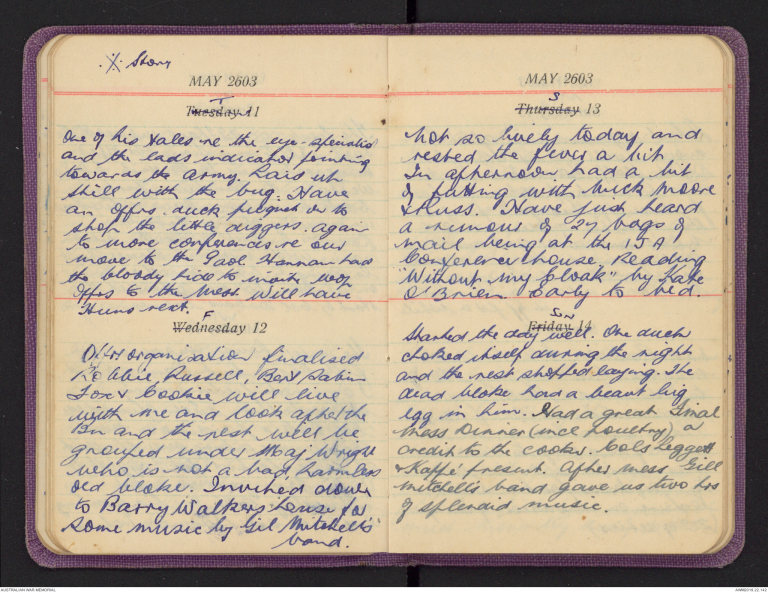 ·X· Story
MAY 2603
T
Tuesday 11
One of his tales re the eye-specialist
and the lads indicator pointing
towards the army. Laid up
still with the bug. Have
an Offrs. duck picquet on to
stop the little diggers. Again
to more conferences re our
move to the Gaol. Hannan had
the bloody hide to invite wop
Offrs to the Mess. Will have
Huns next.
F
Wednesday 12
Offrs organisation finalised
Robbie, Russell, Bert Sabin
Fox & Cookie will live
with me and look after the
Bn and the rest will be
grouped under Maj Wright
who is not a bad, harmless
old bloke. Invited down
to Barry Walkers house for
some music by Gil Mitchell's
band.
MAY 2603
S
Thursday 13
Not so lively today and
rested the fever a bit
In afternoon had a bit
of putting with Mick Moore
& Russ. Have just heard
a rumour of 27 bags of
mail being at the IJA
Conference house. Reading
"Without my Cloak" by Kate
O'Brien. Early to bed.
Sn
Friday 14
Started the day well. One duck
choked itself during the night
and the rest stopped laying. The
dead bloke had a beaut big
egg in him. Had a great final
Mess Dinner (incl poultry) a
credit to the cooks. Cols Leggett
& Kappe present. After mess Gill
Mitchell's band gave us two hrs
of splendid music.
AUSTRALIAN WAR MEMORIAL
AWM2019.22.142